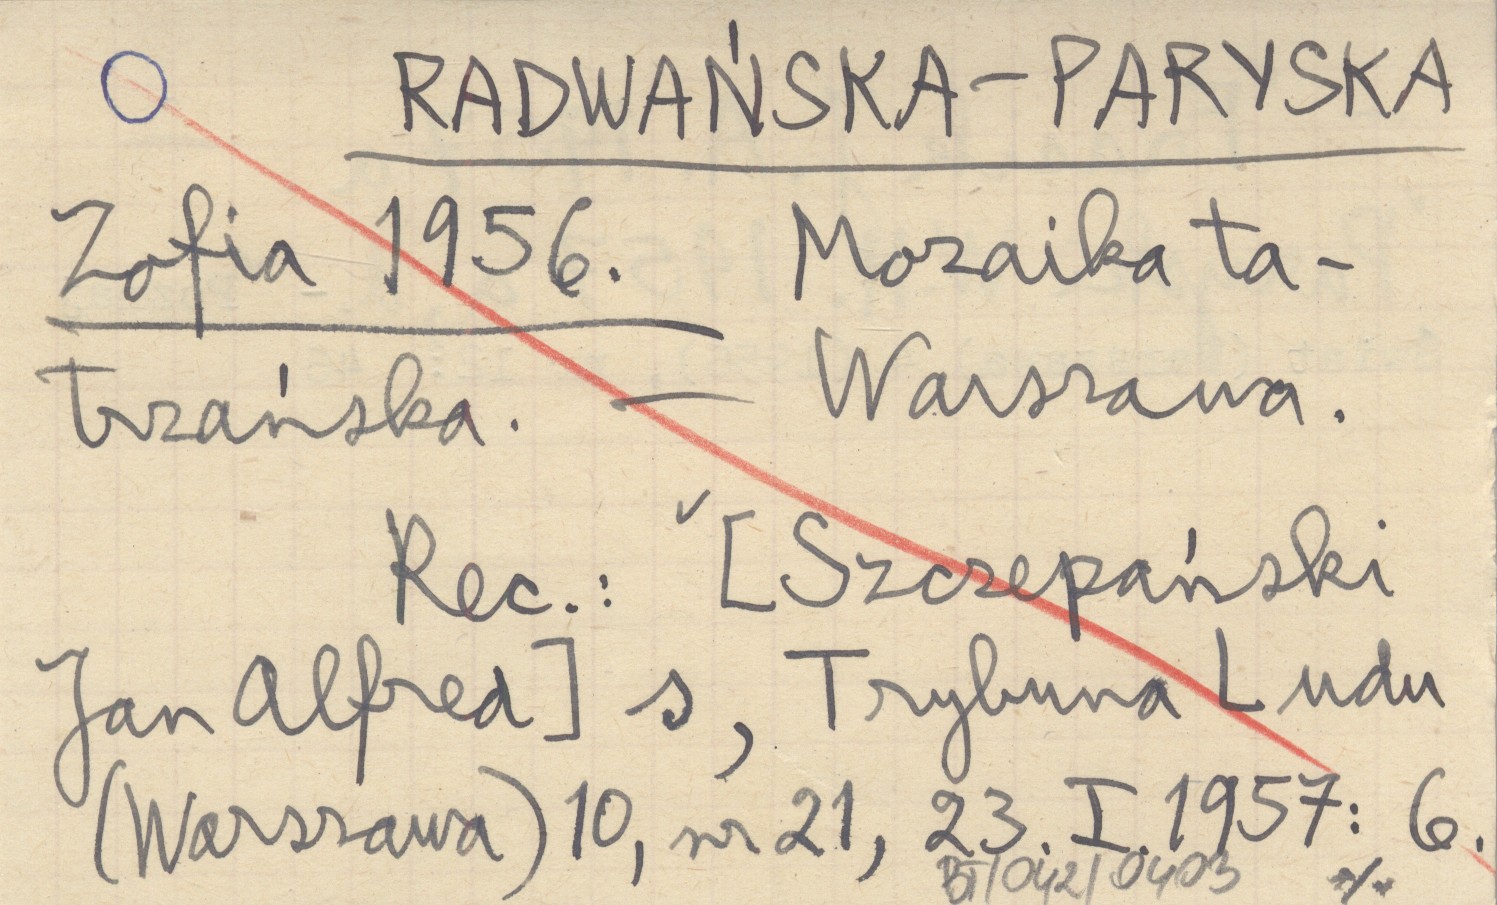 RADWAŃSKA-PARYSKA
Zofia 1956. Mozaika ta-
trzańska. — Warszawa.
Rec.: [Szczepański
Jan Alfred] s, Trybuna Ludu
(Warszawa) 10, nr 21, 23. I. 1957: 6.
BT/042/0403